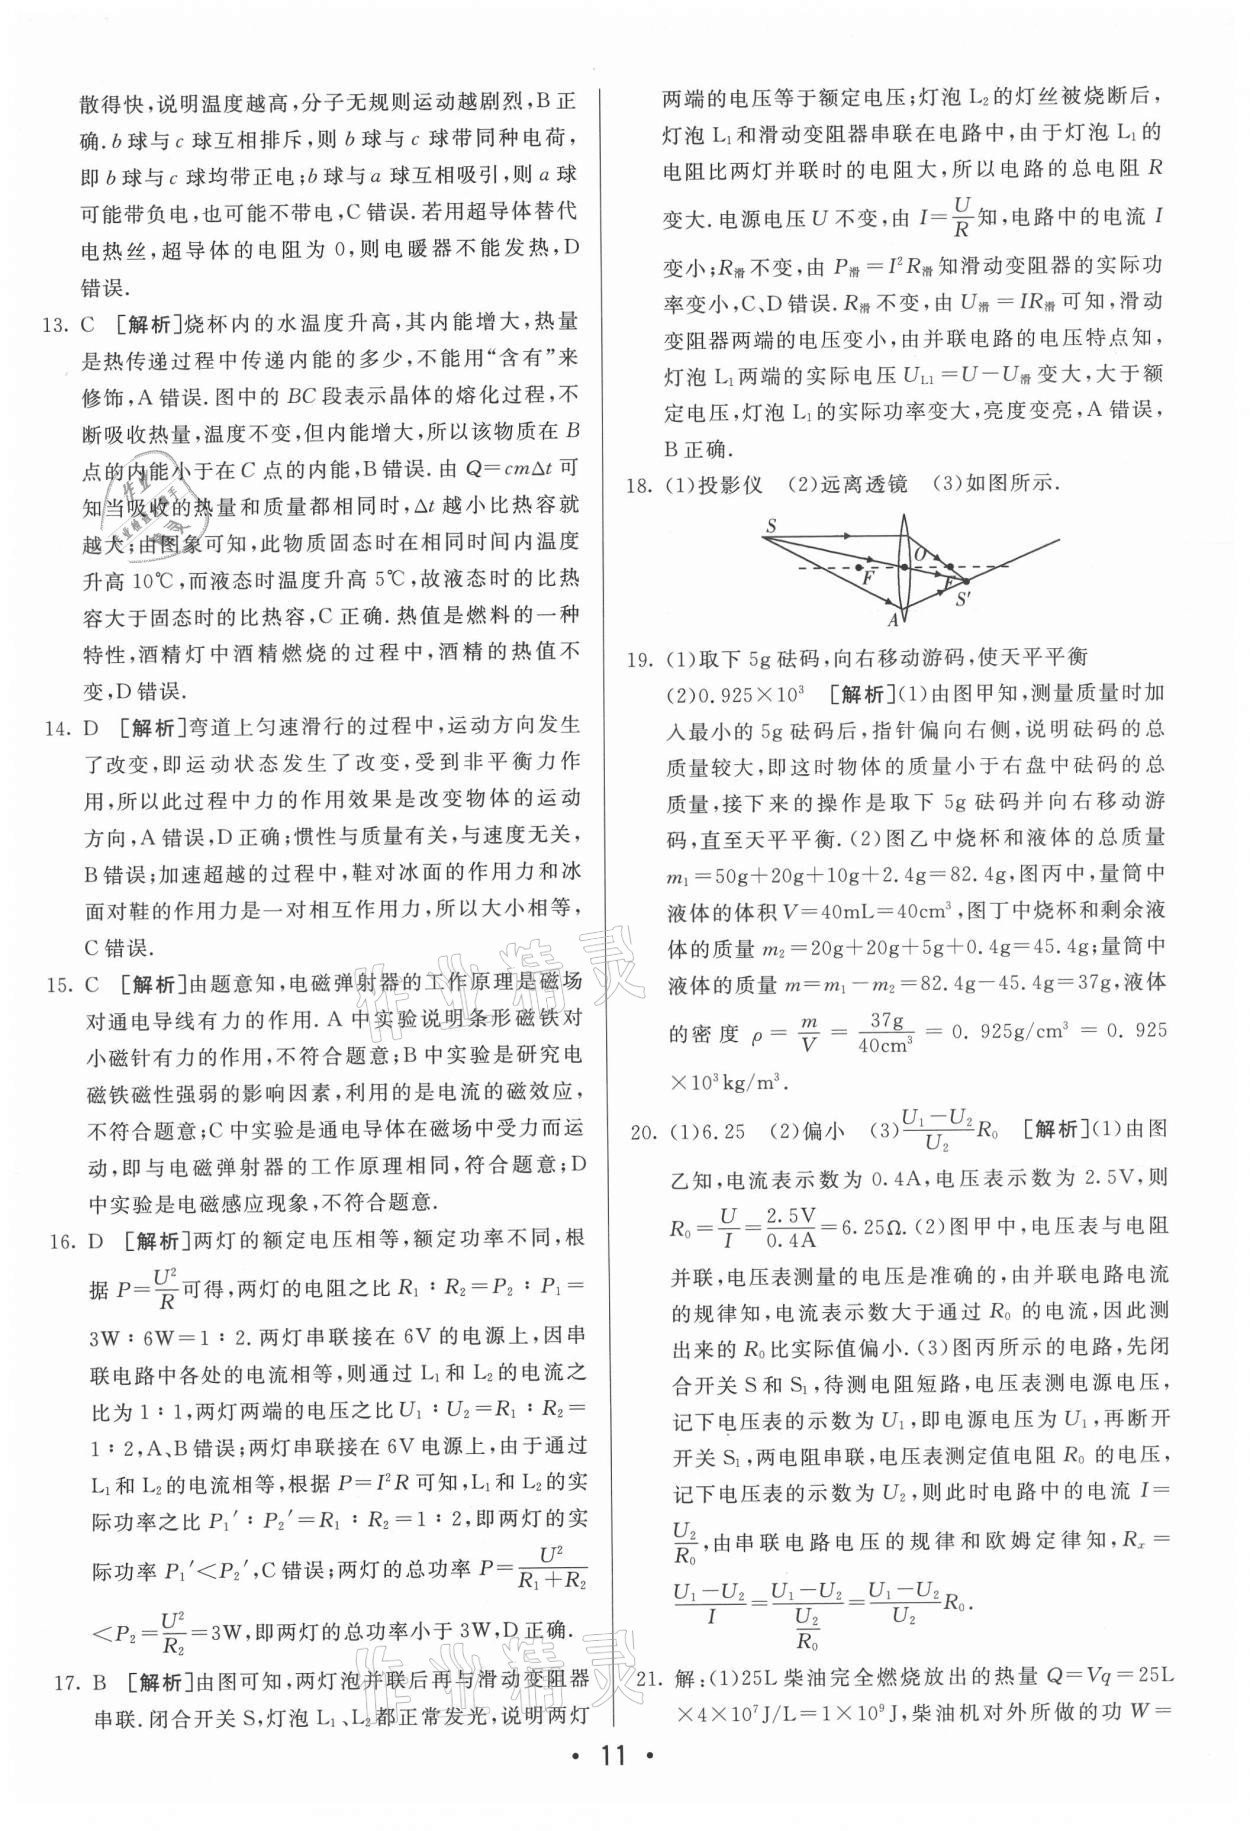 散得快,说明温度越高,分子无规则运动越剧烈,B正
确.b球与c球互相排斥,则b球与c球带同种电荷,
即b球与c球均带正电;b球与a球互相吸引,则a球
可能带负电,也可能不带电,C错误.若用超导体替代
电热丝,超导体的电阻为0,则电暖器不能发热,D
错误.
13. C [解析]烧杯内的水温度升高,其内能增大,热量
是热传递过程中传递内能的多少,不能用“含有”来
修饰,A错误.图中的BC段表示晶体的熔化过程,不
断吸收热量,温度不变,但内能增大,所以该物质在B
点的内能小于在C点的内能,B错误.由Q=cmΔt可
知当吸收的热量和质量都相同时,Δt越小比热容就
越大;由图象可知,此物质固态时在相同时间内温度
升高10℃,而液态时温度升高5℃,故液态时的比热
容大于固态时的比热容,C正确.热值是燃料的一种
特性,酒精灯中酒精燃烧的过程中,酒精的热值不
变,D错误.
14. D [解析]弯道上匀速滑行的过程中,运动方向发生
了改变,即运动状态发生了改变,受到非平衡力作
用,所以此过程中力的作用效果是改变物体的运动
方向,A错误,D正确;惯性与质量有关,与速度无关,
B错误;加速超越的过程中,鞋对冰面的作用力和冰
面对鞋的作用力是一对相互作用力,所以大小相等,
C错误.
15. C [解析]由题意知,电磁弹射器的工作原理是磁场
对通电导线有力的作用.A中实验说明条形磁铁对
小磁针有力的作用,不符合题意;B中实验是研究电
磁铁磁性强弱的影响因素,利用的是电流的磁效应,
不符合题意;C中实验是通电导体在磁场中受力而运
动,即与电磁弹射器的工作原理相同,符合题意;D
中实验是电磁感应现象,不符合题意.
16. D [解析]两灯的额定电压相等,额定功率不同,根
据P=U²/R可得,两灯的电阻之比R₁∶R₂=P₂∶P₁=
3W∶6W=1∶2.两灯串联接在6V的电源上,因串
联电路中各处的电流相等,则通过L₁和L₂的电流之
比为1∶1,两灯两端的电压之比U₁∶U₂=R₁∶R₂=
1∶2,A、B错误;两灯串联接在6V电源上,由于通过
L₁和L₂的电流相等,根据P=I²R可知,L₁和L₂的实
际功率之比P₁′∶P₂′=R₁∶R₂=1∶2,即两灯的实
际功率P₁′<P₂′,C错误;两灯的总功率P=U²/(R₁+R₂)
<P₂=U²/R₂=3W,即两灯的总功率小于3W,D正确.
17. B [解析]由图可知,两灯泡并联后再与滑动变阻器
串联.闭合开关S,灯泡L₁、L₂都正常发光,说明两灯
两端的电压等于额定电压;灯泡L₂的灯丝被烧断后,
灯泡L₁和滑动变阻器串联在电路中,由于灯泡L₁的
电阻比两灯并联时的电阻大,所以电路的总电阻R
变大.电源电压U不变,由I=U/R知,电路中的电流I
变小;R滑不变,由P滑=I²R滑知滑动变阻器的实际功
率变小,C、D错误.R滑不变,由U滑=IR滑可知,滑动
变阻器两端的电压变小,由并联电路的电压特点知,
灯泡L₁两端的实际电压U_L1=U-U滑变大,大于额
定电压,灯泡L₁的实际功率变大,亮度变亮,A错误,
B正确.
18. (1)投影仪 (2)远离透镜 (3)如图所示.
S
O
F
F
S′
A
19. (1)取下5g砝码,向右移动游码,使天平平衡
(2)0.925×10³ [解析](1)由图甲知,测量质量时加
入最小的5g砝码后,指针偏向右侧,说明砝码的总
质量较大,即这时物体的质量小于右盘中砝码的总
质量,接下来的操作是取下5g砝码并向右移动游
码,直至天平平衡.(2)图乙中烧杯和液体的总质量
m₁=50g+20g+10g+2.4g=82.4g,图丙中,量筒中
液体的体积V=40mL=40cm³,图丁中烧杯和剩余液
体的质量m₂=20g+20g+5g+0.4g=45.4g;量筒中
液体的质量m=m₁-m₂=82.4g-45.4g=37g,液体
的密度ρ=m/V=37g/40cm³=0.925g/cm³=0.925
×10³kg/m³.
20. (1)6.25 (2)偏小 (3)(U₁-U₂)/U₂ R₀ [解析](1)由图
乙知,电流表示数为0.4A,电压表示数为2.5V,则
R₀=U/I=2.5V/0.4A=6.25Ω.(2)图甲中,电压表与电阻
并联,电压表测量的电压是准确的,由并联电路电流
的规律知,电流表示数大于通过R₀的电流,因此测
出来的R₀比实际值偏小.(3)图丙所示的电路,先闭
合开关S和S₁,待测电阻短路,电压表测电源电压,
记下电压表的示数为U₁,即电源电压为U₁,再断开
开关S₁,两电阻串联,电压表测定值电阻R₀的电压,
记下电压表的示数为U₂,则此时电路中的电流I=
U₂/R₀,由串联电路电压的规律和欧姆定律知,Rₓ=
(U₁-U₂)/I=(U₁-U₂)/(U₂/R₀)=(U₁-U₂)/U₂ R₀.
21. 解:(1)25L柴油完全燃烧放出的热量Q=Vq=25L
×4×10⁷J/L=1×10⁹J,柴油机对外所做的功W=
• 11 •
作业精灵
作业精灵